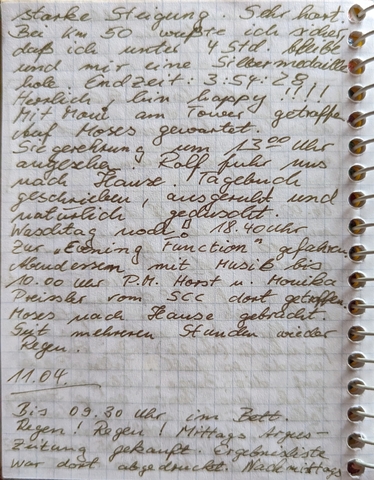 starke Steigung. Sehr hart.
Bei Km 50 wußte ich sicher,
daß ich unter 4 Std. bleibe
und mir eine Silbermedaille
hole Endzeit: 3:54:28
Herrlich, bin happy !!!!
Mit Moni am Tower getroffen
Auf Moses gewartet.
Siegerehrung um 13.00 Uhr
angesehen. Rolf fuhr uns
nach Hause. Tagebuch
geschrieben, ausgeruht und
natürlich geduscht.
Waschtag noch 18.40 Uhr
Zur "Evening Function" gefahren.
Abendessen mit Musik bis
10.00 Uhr P.M. Horst u. Monika
Preissler vom SCC dort getroffen.
Moses nach Hause gebracht.
Seit mehreren Stunden wieder
Regen.
11.04.
Bis 09.30 Uhr im Bett.
Regen! Regen! Mittags Argus-
Zeitung gekauft. Ergebnisliste
war dort abgedruckt. Nachmittags